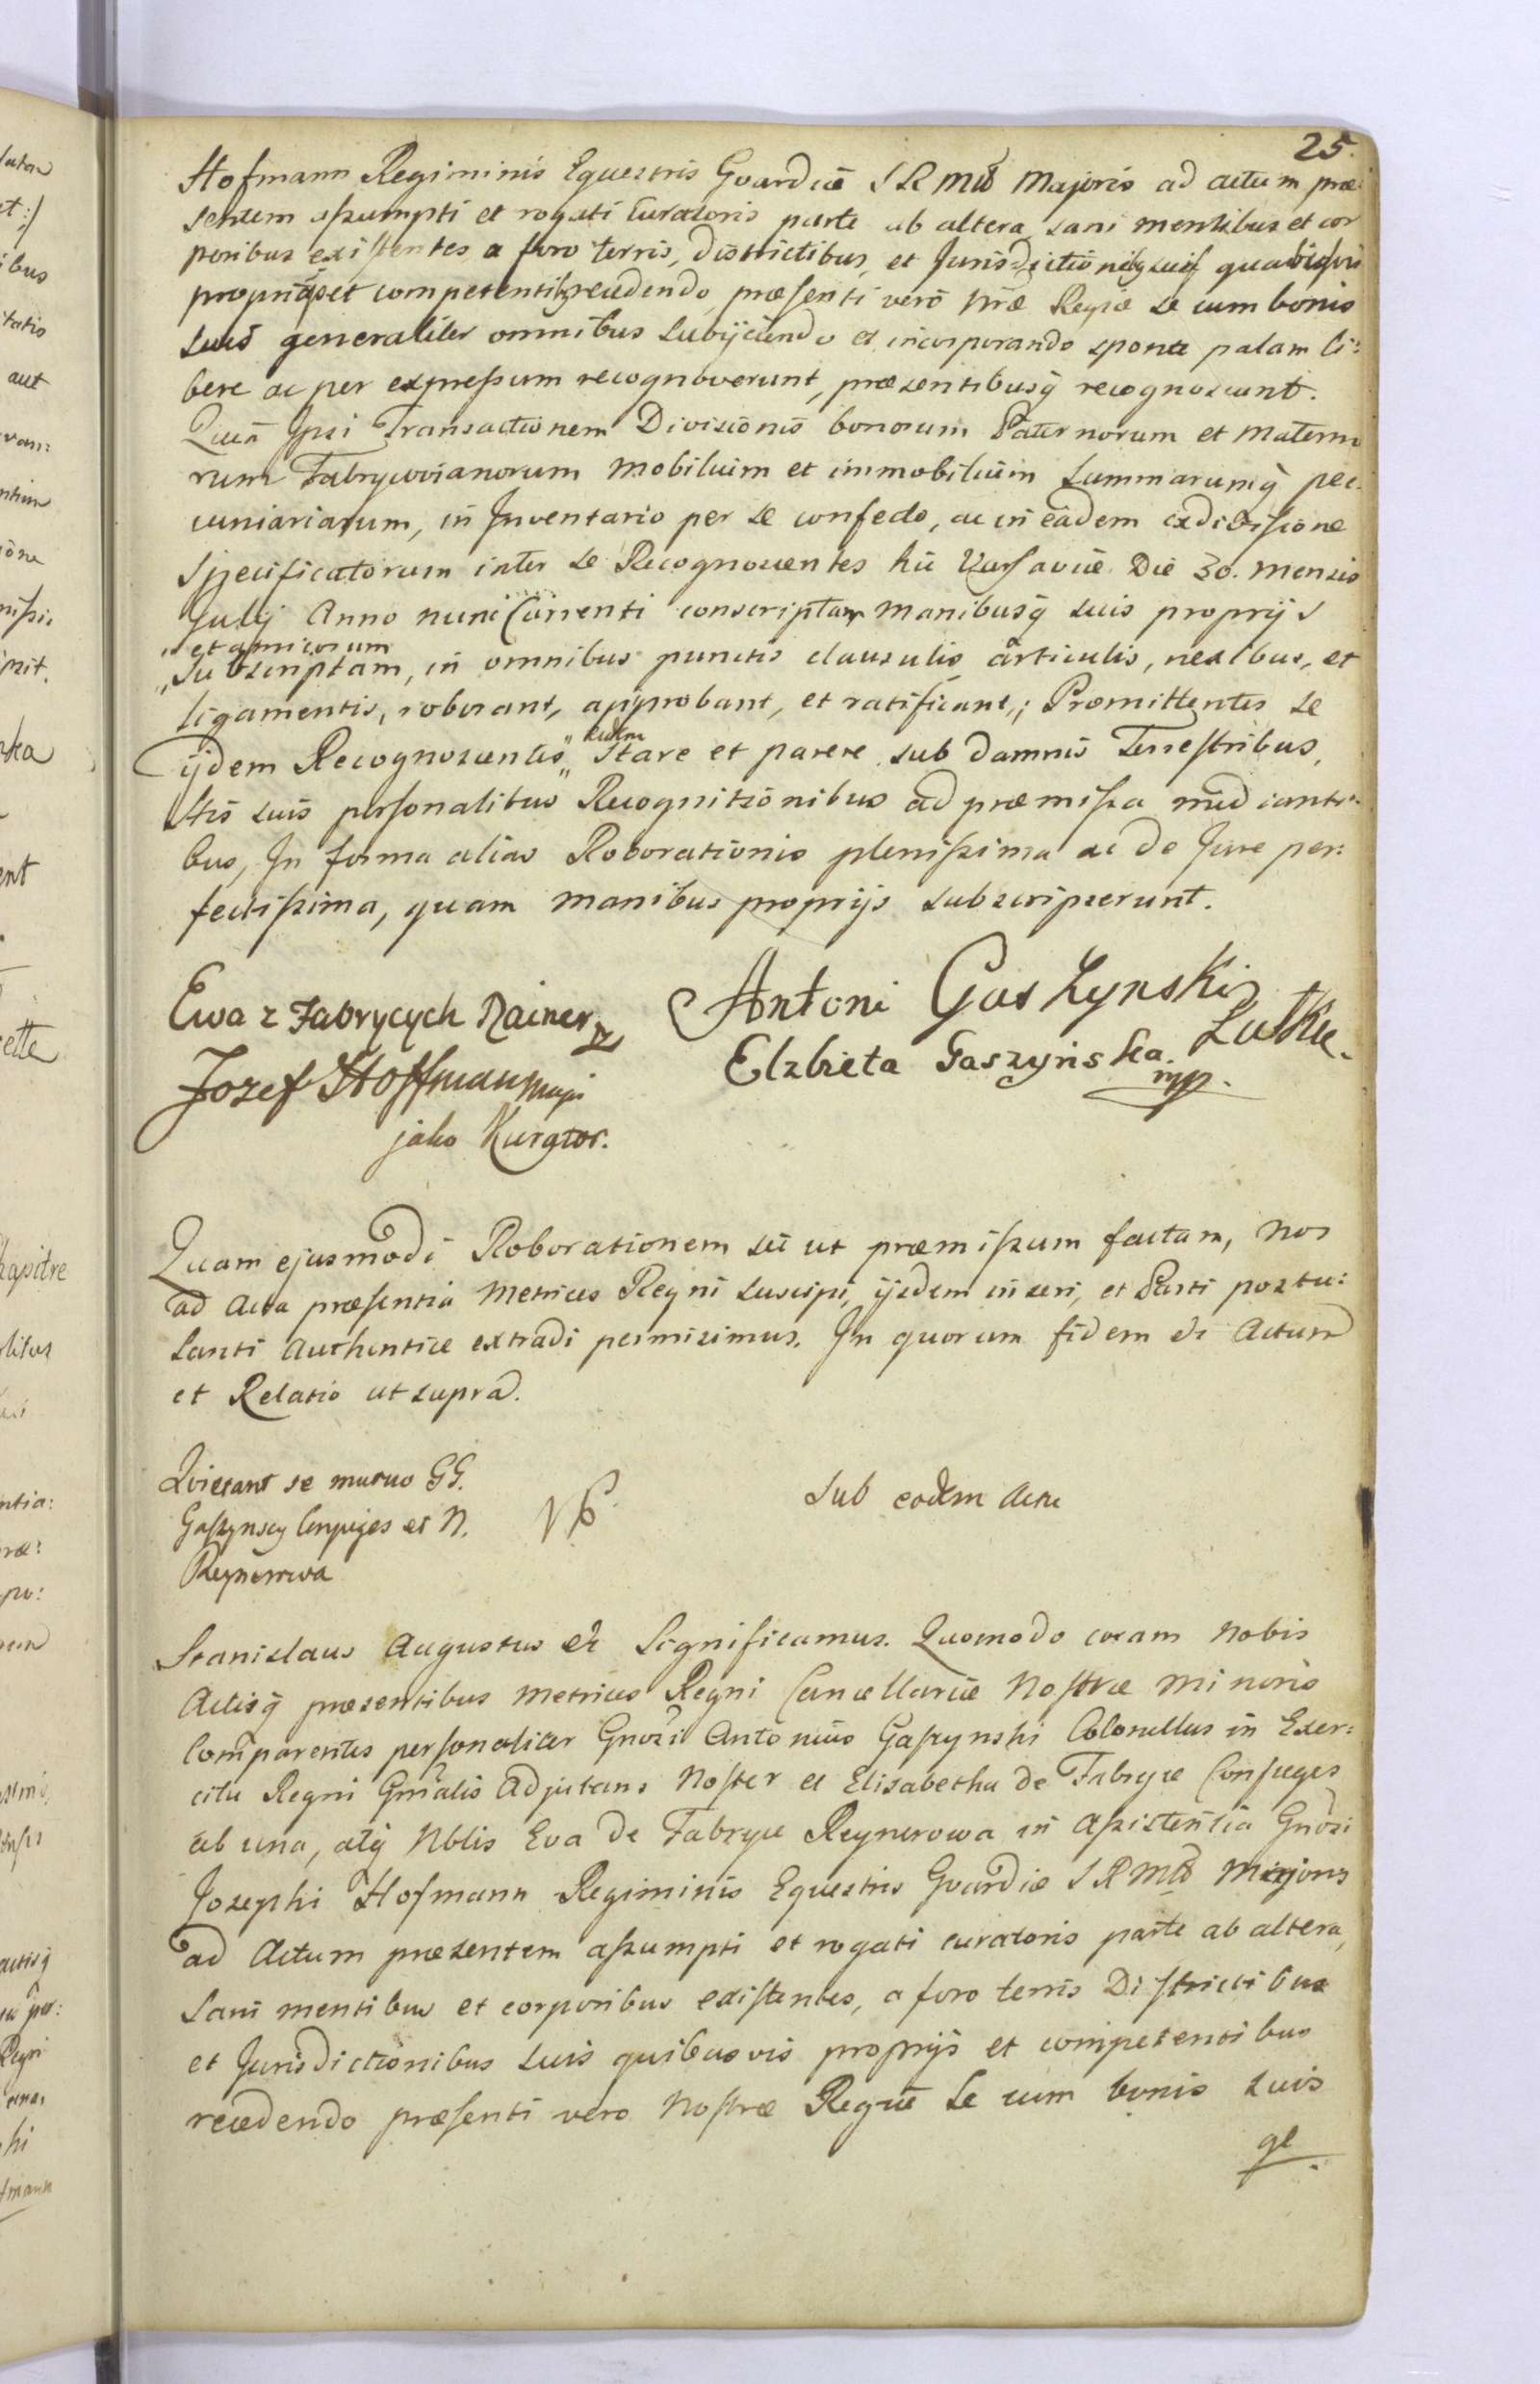 25.
Hofmann Regiminis Equestris Guardiæ S R Mtis Majoris ad actum præ
sentem aßumpti et rogati Curatoris parte ab altera, sani mentibus et cor
poribus existentes a foro terris, districtibus, et Jurisdictionibq suis quibusvis
proprijs et competentibq recedendo, præsenti vero Nræ Regiæ se cum bonis
suis generaliter omnibus subijciendo et incorporando sponte palam li:
bere ac per expreßum recognoverunt, præsentibusq recognoscunt.
Quia Ipsi Transactionem Divisionis bonorum Paternorum et Materno
rum Fabrycovianorum Mobilium et immobilium Summarumq pec:
uniariarum, in Inventario per se confecto, ac in eadem
Specificatorum inter se Recognoscentes hic Varsaviæ Die 30. Mensis
Julij Anno nunc Currenti conscriptam Manibusq suis proprijs
et amicorum
Subscriptam, in omnibus punctis clausulis articulis, nexibus, et
ligamentis, roborant, approbant, et ratificant; Promittentes se
ijdem Recognoscentes eidem Stare et parere sub damnis Terrestribus,
Stis suis personalibus Recognitionibus ad præmißa mediante:
bus, In forma alias Roborationis plenißima ac de Jure per:
fectißima, quam manibus proprijs subscripserunt.
Ewa z Fabrycych Rainer
Antoni Gaszynski
Elzbieta Gaszyńska mp.
Jozef Hoffmann Maj
jako Kurator.
Quam ejusmodi Roborationem sic ut præmißum factam, Nos
ad Acta præsentia Metrices Regni suscipi, ijsdem inseri, et Parti postu:
lanti Authentice extradi permisimus. In quorum fidem &c Actum
et Relatio ut supra.
Quietant se mutuo GG.
Gaszynscy Conjuges et N.
Reynerowa
Sub eodem Actu
Stanislaus Augustus &c Significamus. Quomodo coram Nobis
Actisq præsentibus Metrices Regni Cancellariæ Nostræ Minoris
Comparentes personaliter Gnosi Antonius Gaszynski Colonellus in Exer:
citu Regni Gnralis Adjutans Noster et Elisabetha de Fabryce Conjuges
ab una, atq Nblis Eva de Fabryce Reynerowa in Aßistentia Gnosi
Josephi Hofmann Regiminis Equestris Guardiæ S R Mtis Majoris
ad Actum præsentem aßumpti et rogati curatoris parte ab altera,
Sani mentibus et corporibus existentes, a foro terris Districtibus
et Jurisdictionibus suis quibusvis proprijs et competentibus
recedendo præsenti vero Nostræ Regiæ Se cum bonis suis
ge